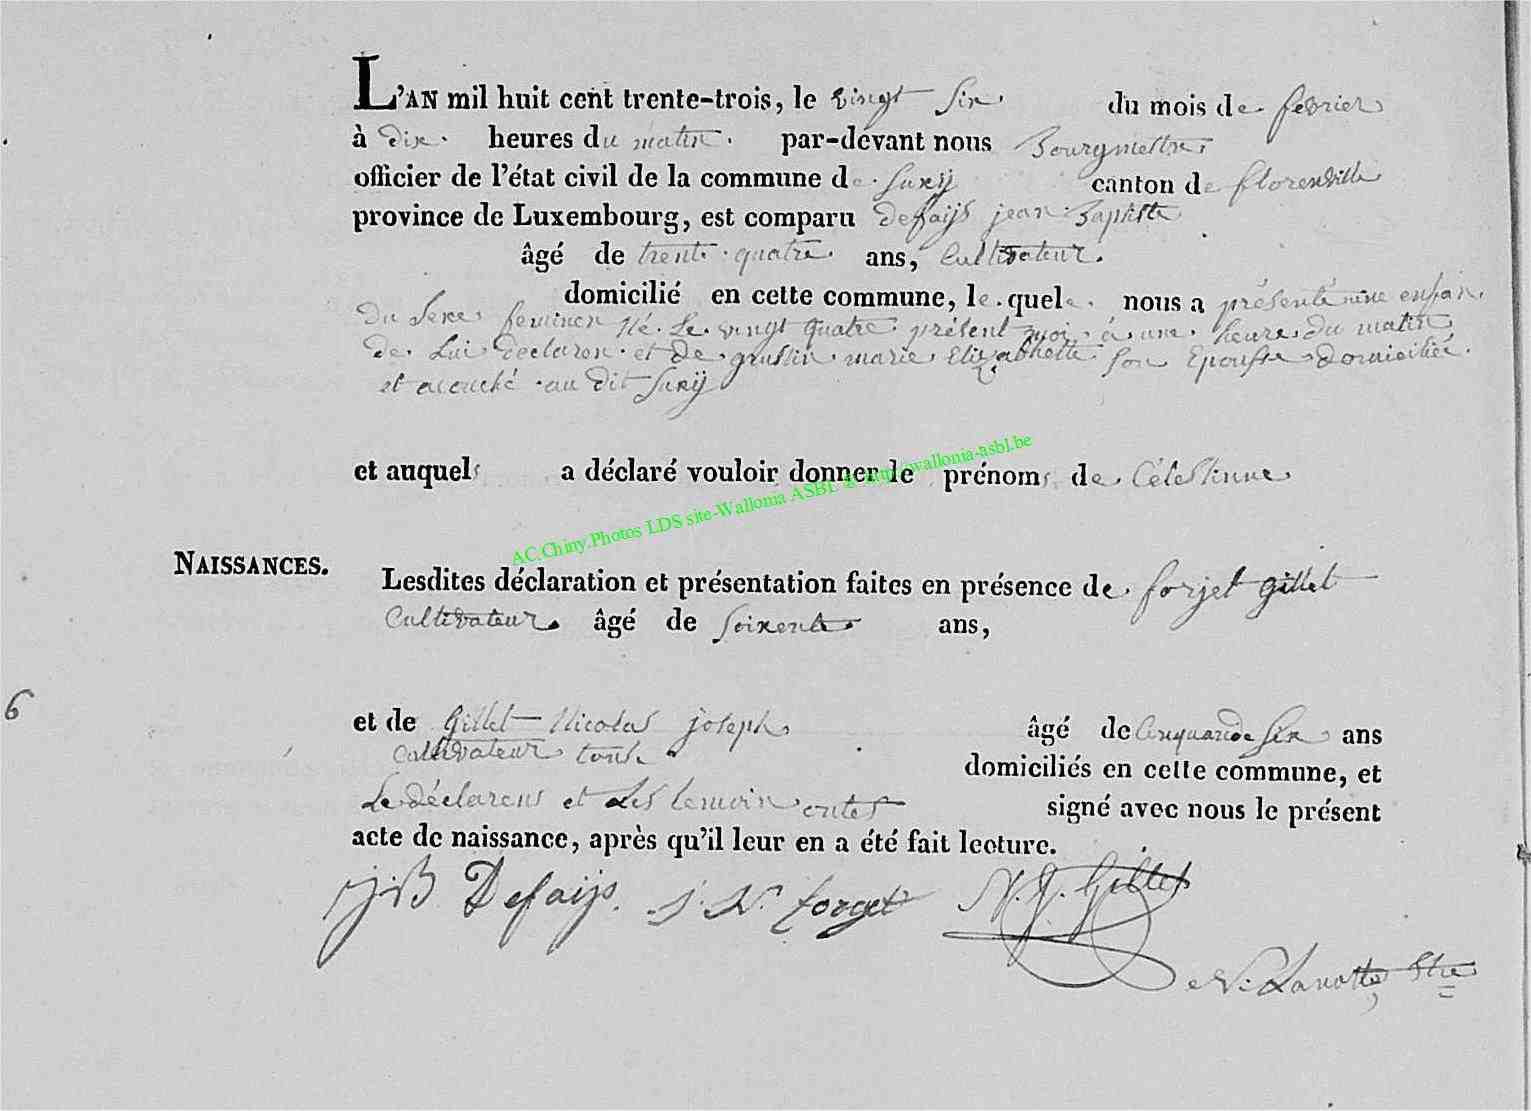 L'AN mil huit cent trente-trois, le vingt Six du mois de fevrier
à dix heures du matin par-devant nous Bourgmestre
officier de l'état civil de la commune de Suxÿ canton de florenville
province de Luxembourg, est comparu defaijs jean Baptiste
âgé de trente quatre ans, Cultivateur.
domicilié en cette commune, lequel nous a présenté une enfan
du Sexe feminen né Le vingt quatre présent moi à une heure du matin
de Lui declaron et de marie Elizabhette Son Epousse domiciliée
et acouché au dit Suxÿ
et auquel a déclaré vouloir donner le prénom de Célestinne
NAISSANCES.
Lesdites déclaration et présentation faites en présence de forjet gillet
Cultivateur âgé de Soixente ans,
6
et de Gillet Nicolas joseph âgé de Cinquande Six ans
Cultivateur tous
domiciliés en cette commune, et
Le déclarens et Les temoin ontes signé avec nous le présent
acte de naissance, après qu'il leur en a été fait lecture.
J:B Defaijs. J. N. forget N. J. Gillet
AC.Chiny.Photos LDS site-Wallonia ASBL © http://wallonia-asbl.be